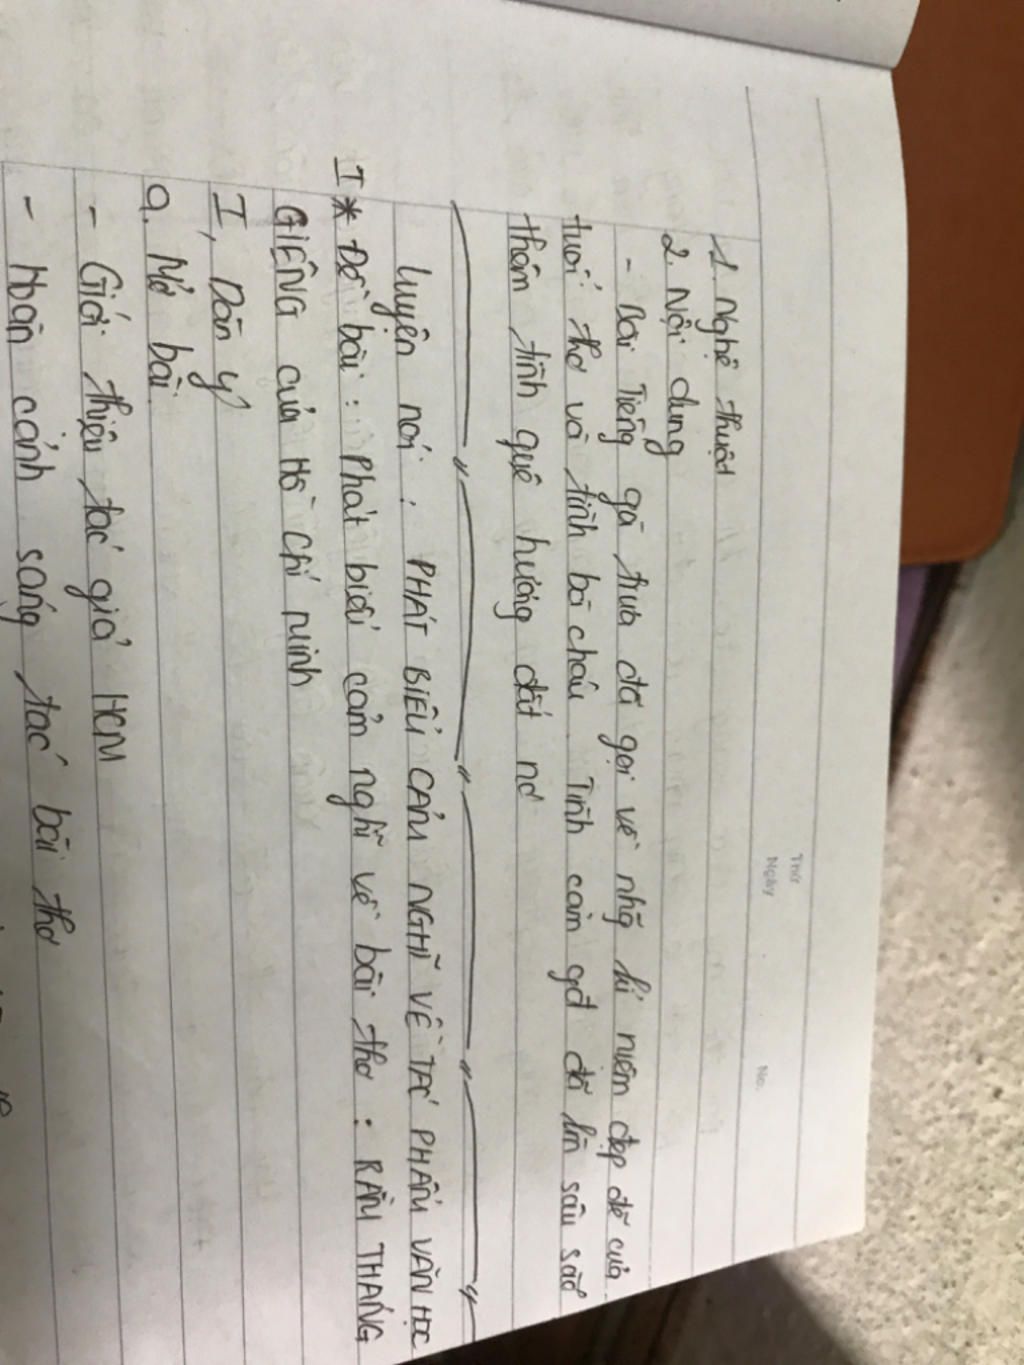 Thứ
Ngày
No.
1. Nghệ thuật
2. Nội dung
- Bài Tiếng gà trưa đã gọi về nhữg kỉ niệm đẹp đẽ của
tuổi thơ và tình bà cháu. Tình cảm gđ đã làm sâu sắc
thêm tình quê hương đất nc
Luyện nói : PHÁT BIỂU CẢM NGHĨ VỀ TÁC PHẨM VĂN HỌC
I * Đề bài : Phát biểu cảm nghĩ về bài thơ : RẰM THÁNG
GIÊNG của Hồ Chí Minh
I, Dàn ý
a. Mở bài
- Giới thiệu tác giả HCM
- Hoàn cảnh sáng tác bài thơ